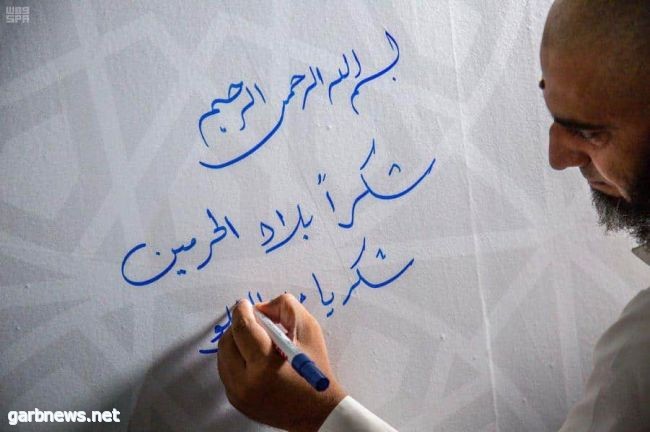 واس
SPA
بسم الله الرحمن الرحيم
شكراً بلاد الحرمين
شكر يا
garbnews.net